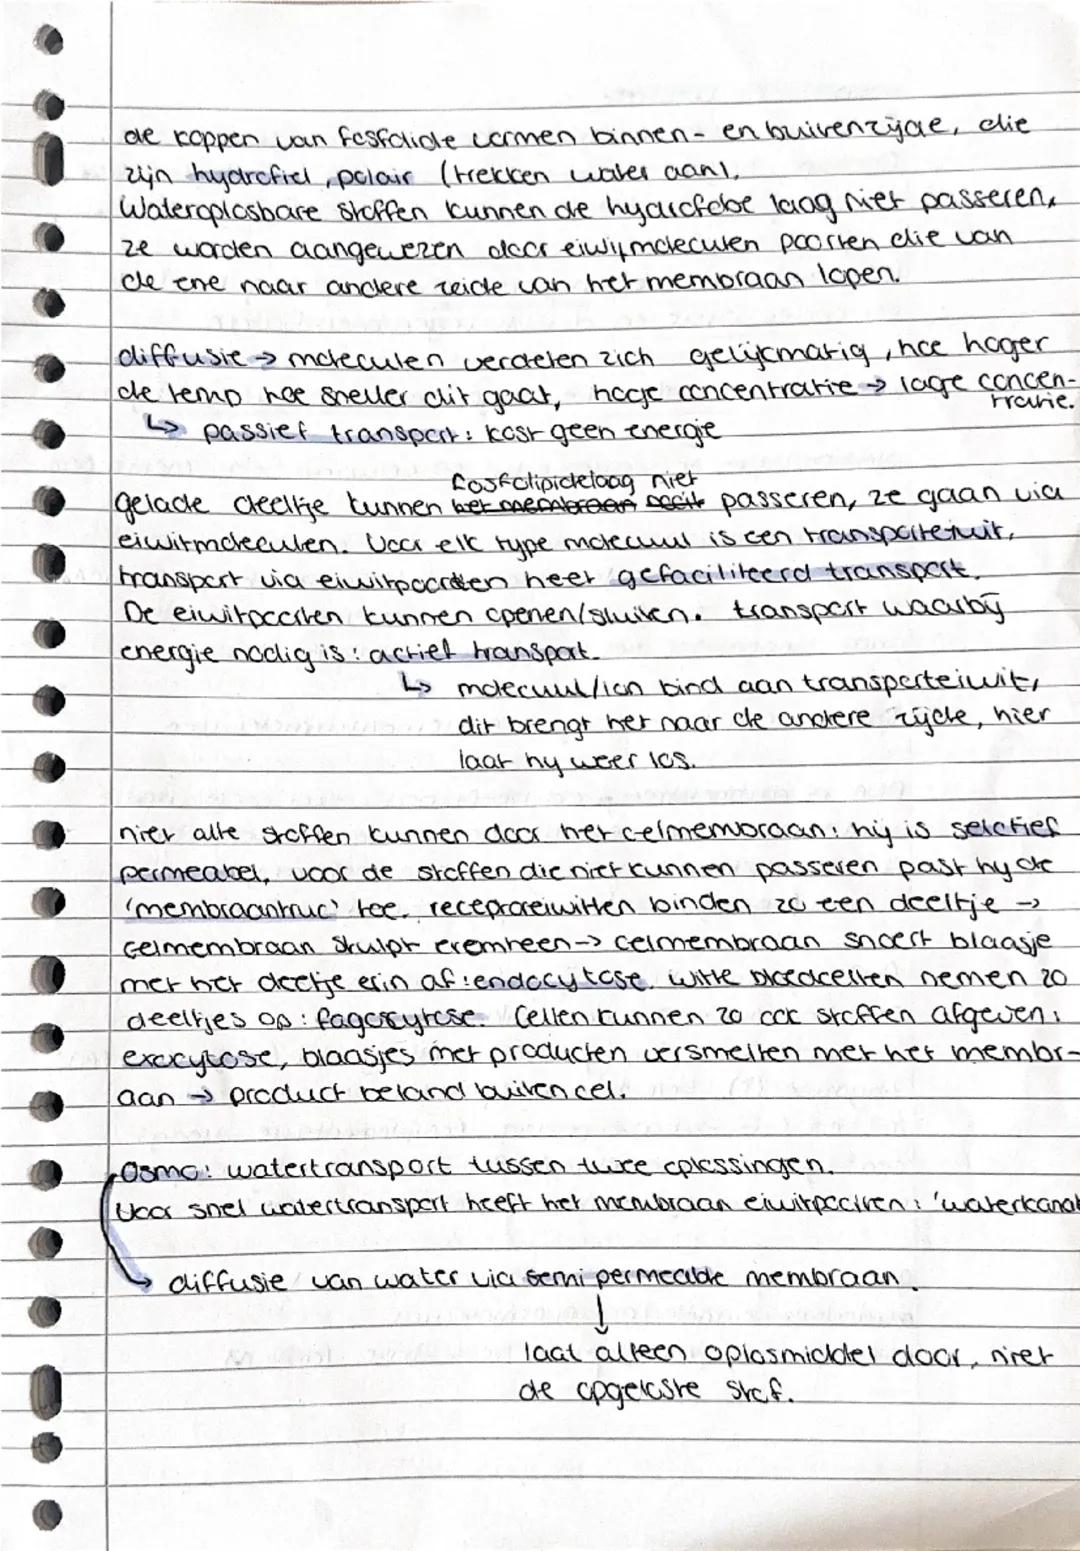 de koppen van fosfolide vormen binnen- en buitenzijde, die
zijn hydrofiel, polair (trekken water aan).
Wateroplosbare stoffen kunnen de hydrofobe laag niet passeren,
ze worden aangewezen door eiwijmoleculen poorten die van
de ene naar andere zeide van het membraan lopen.
diffusie → moleculen verdelen zich gelijkmatig, hoe hoger
de temp hoe sneller dit gaat, hoge concentratie → lage concen-
tratie.
↳ passief transport: kost geen energie
fosfolipidelaag niet
gelade deeltje kunnen het membraan passeren, ze gaan via
eiwitmoleculen. Voor elk type molecuul is een transporteiwit,
transport via eiwitpoorten heet gefaciliteerd transport.
De eiwitpoorten kunnen openen/sluiten. transport waarbij
energie nodig is: actief transport.
↳ molecuul/ion bind aan transporteiwit,
dit brengt het naar de andere zijde, hier
laat hy weer los.
niet alle stoffen kunnen door het celmembraan: hij is selctief
permeabel, voor de stoffen die niet kunnen passeren past hy de
'membraantruc' toe. receptoreiwitten binden zo een deeltje →
celmembraan stulpt eromheen → celmembraan snoert blaasje
met het deeltje erin af: endocytose. witte bloedcellen nemen zo
deeltjes op: fagocytose. Cellen kunnen zo ook stoffen afgeven:
exocytose, blaasjes met producten versmelten met het membr-
aan → product beland buiten cel.
Osmo: watertransport tussen twee oplossingen.
Voor snel watertransport heeft het membraan eiwitpoorten: 'waterkanal
↳ diffusie van water via semi permeabele membraan.
↓
laat alleen oplosmiddel door, niet
de opgeloste stof.